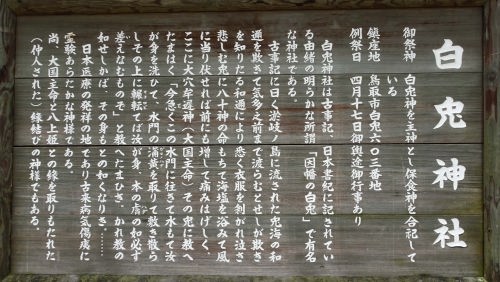 白兎神社
御祭神　白兎神を主神とし保食神を合祀して
いる
鎮座地　鳥取市白兎六〇三番地
例祭日　四月十七日御輿途御行事あり
白兎神社は古事記、日本書紀に記されてい
る由緒の明らかな所謂「因幡の白兎」で有名
な神社である。
古事記に曰く淤岐ノ島に流された兎海の和
邇を欺きて気多之前まで渡らむとせしが欺き
を知りたる和邇により悉く衣服を剥がれ泣き
悲しむ兎に八十神の命もちて海塩を浴みて風
に当り伏せれば前にも増して痛みはげしく、
ここに大穴牟遅神（大国主命）その兎に教へ
たまはく「今急くこの水門に往き水もて汝
が身を洗ひて、水門の蒲黄を取りて敷き散ら
しその上に輾転てば汝が身、本の膚の如必ず
差えなむものぞ」と教へたまひき、かれ教の
如せしかば、その身もとの如くなりき……
日本医療の発祥の地であり古来病気傷痍に
霊験あらたかな神様である。
尚、大国主命と八上姫との縁を取りもたれた
（仲人された）縁結びの神様でもある。